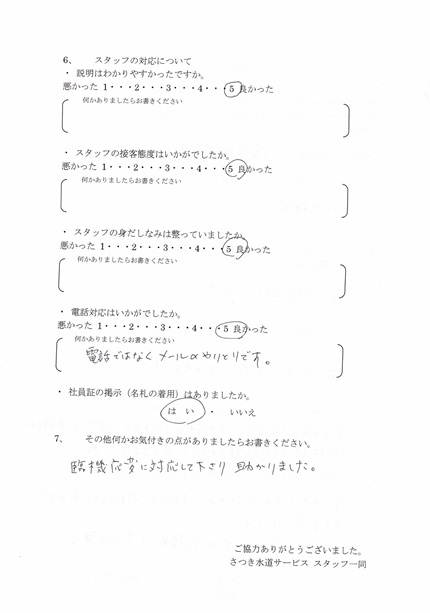 6、 スタッフの対応について
・ 説明はわかりやすかったですか。
悪かった 1・・・2・・・3・・・4・・・5 良かった
何かありましたらお書きください
・ スタッフの接客態度はいかがでしたか。
悪かった 1・・・2・・・3・・・4・・・5 良かった
何かありましたらお書きください
・ スタッフの身だしなみは整っていましたか。
悪かった 1・・・2・・・3・・・4・・・5 良かった
何かありましたらお書きください
・ 電話対応はいかがでしたか。
悪かった 1・・・2・・・3・・・4・・・5 良かった
何かありましたらお書きください
電話ではなくメールのやりとりです。
・ 社員証の掲示（名札の着用）はありましたか。
はい ・ いいえ
7、 その他何かお気付きの点がありましたらお書きください。
臨機応変に対応して下さり助かりました。
ご協力ありがとうございました。
さつき水道サービス スタッフ一同